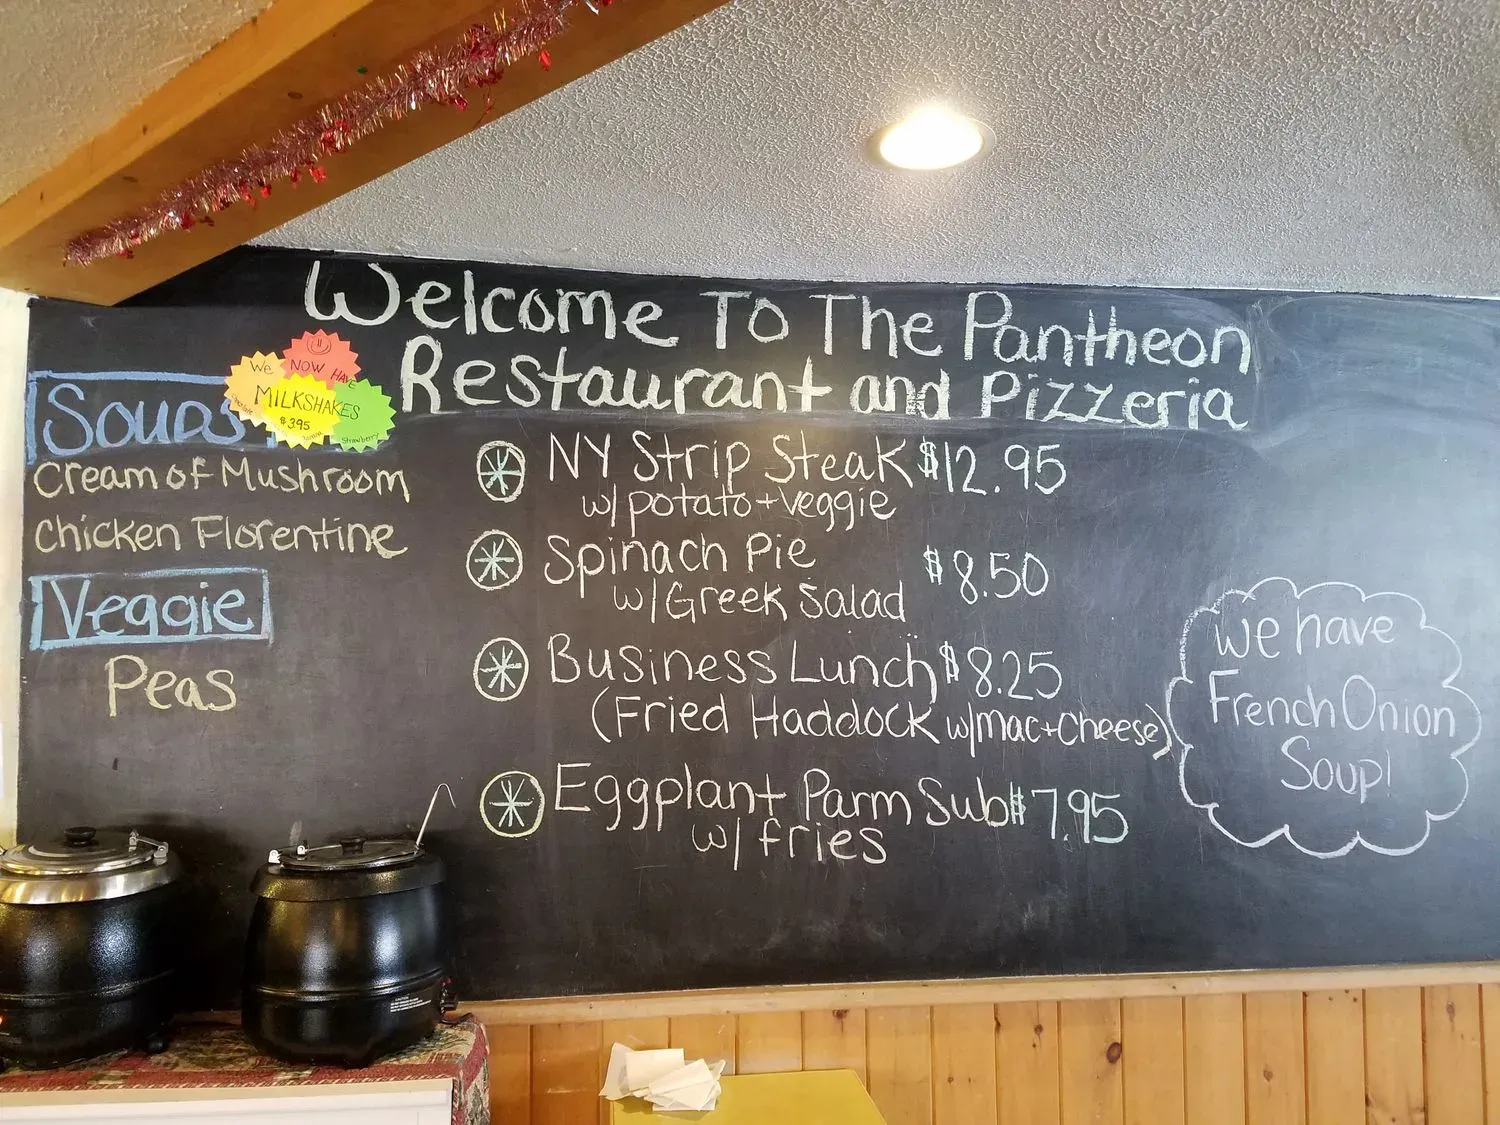 Welcome To The Pantheon
Restaurant and Pizzeria
We NOW HAVE
MILKSHAKES
$3.95
Strawberry
Soups
Cream of Mushroom
Chicken Florentine
Veggie
Peas
NY Strip Steak $12.95
w/potato+veggie
Spinach Pie $8.50
w/Greek Salad
Business Lunch $8.25
(Fried Haddock w/mac+cheese)
Eggplant Parm Sub $7.95
w/ fries
we have
French Onion
Soup!